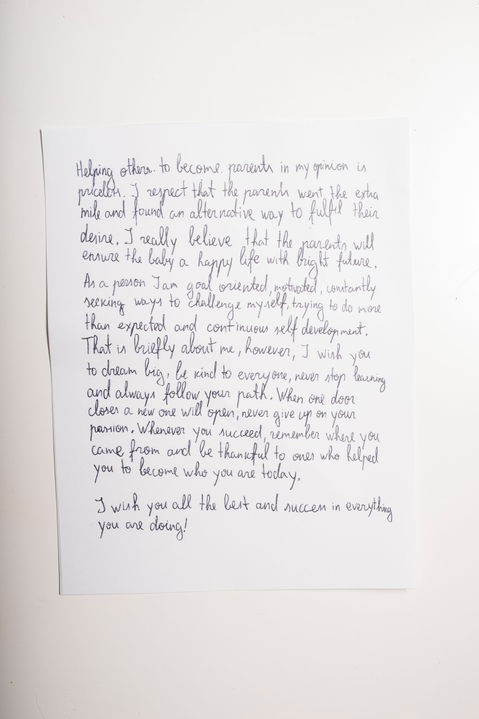 Helping others to become parents in my opinion is
priceless. I respect that the parents went the extra
mile and found an alternative way to fulfil their
desire. I really believe that the parents will
ensure the baby a happy life with bright future.
As a person I am goal oriented, motivated, constantly
seeking ways to challenge myself, trying to do more
than expected and continuous self development.
That is briefly about me, however, I wish you
to dream big, be kind to everyone, never stop learning
and always follow your path. When one door
closes a new one will open, never give up on your
passion. Whenever you succeed, remember where you
came from and be thankful to ones who helped
you to become who you are today.
I wish you all the best and success in everything
you are doing!